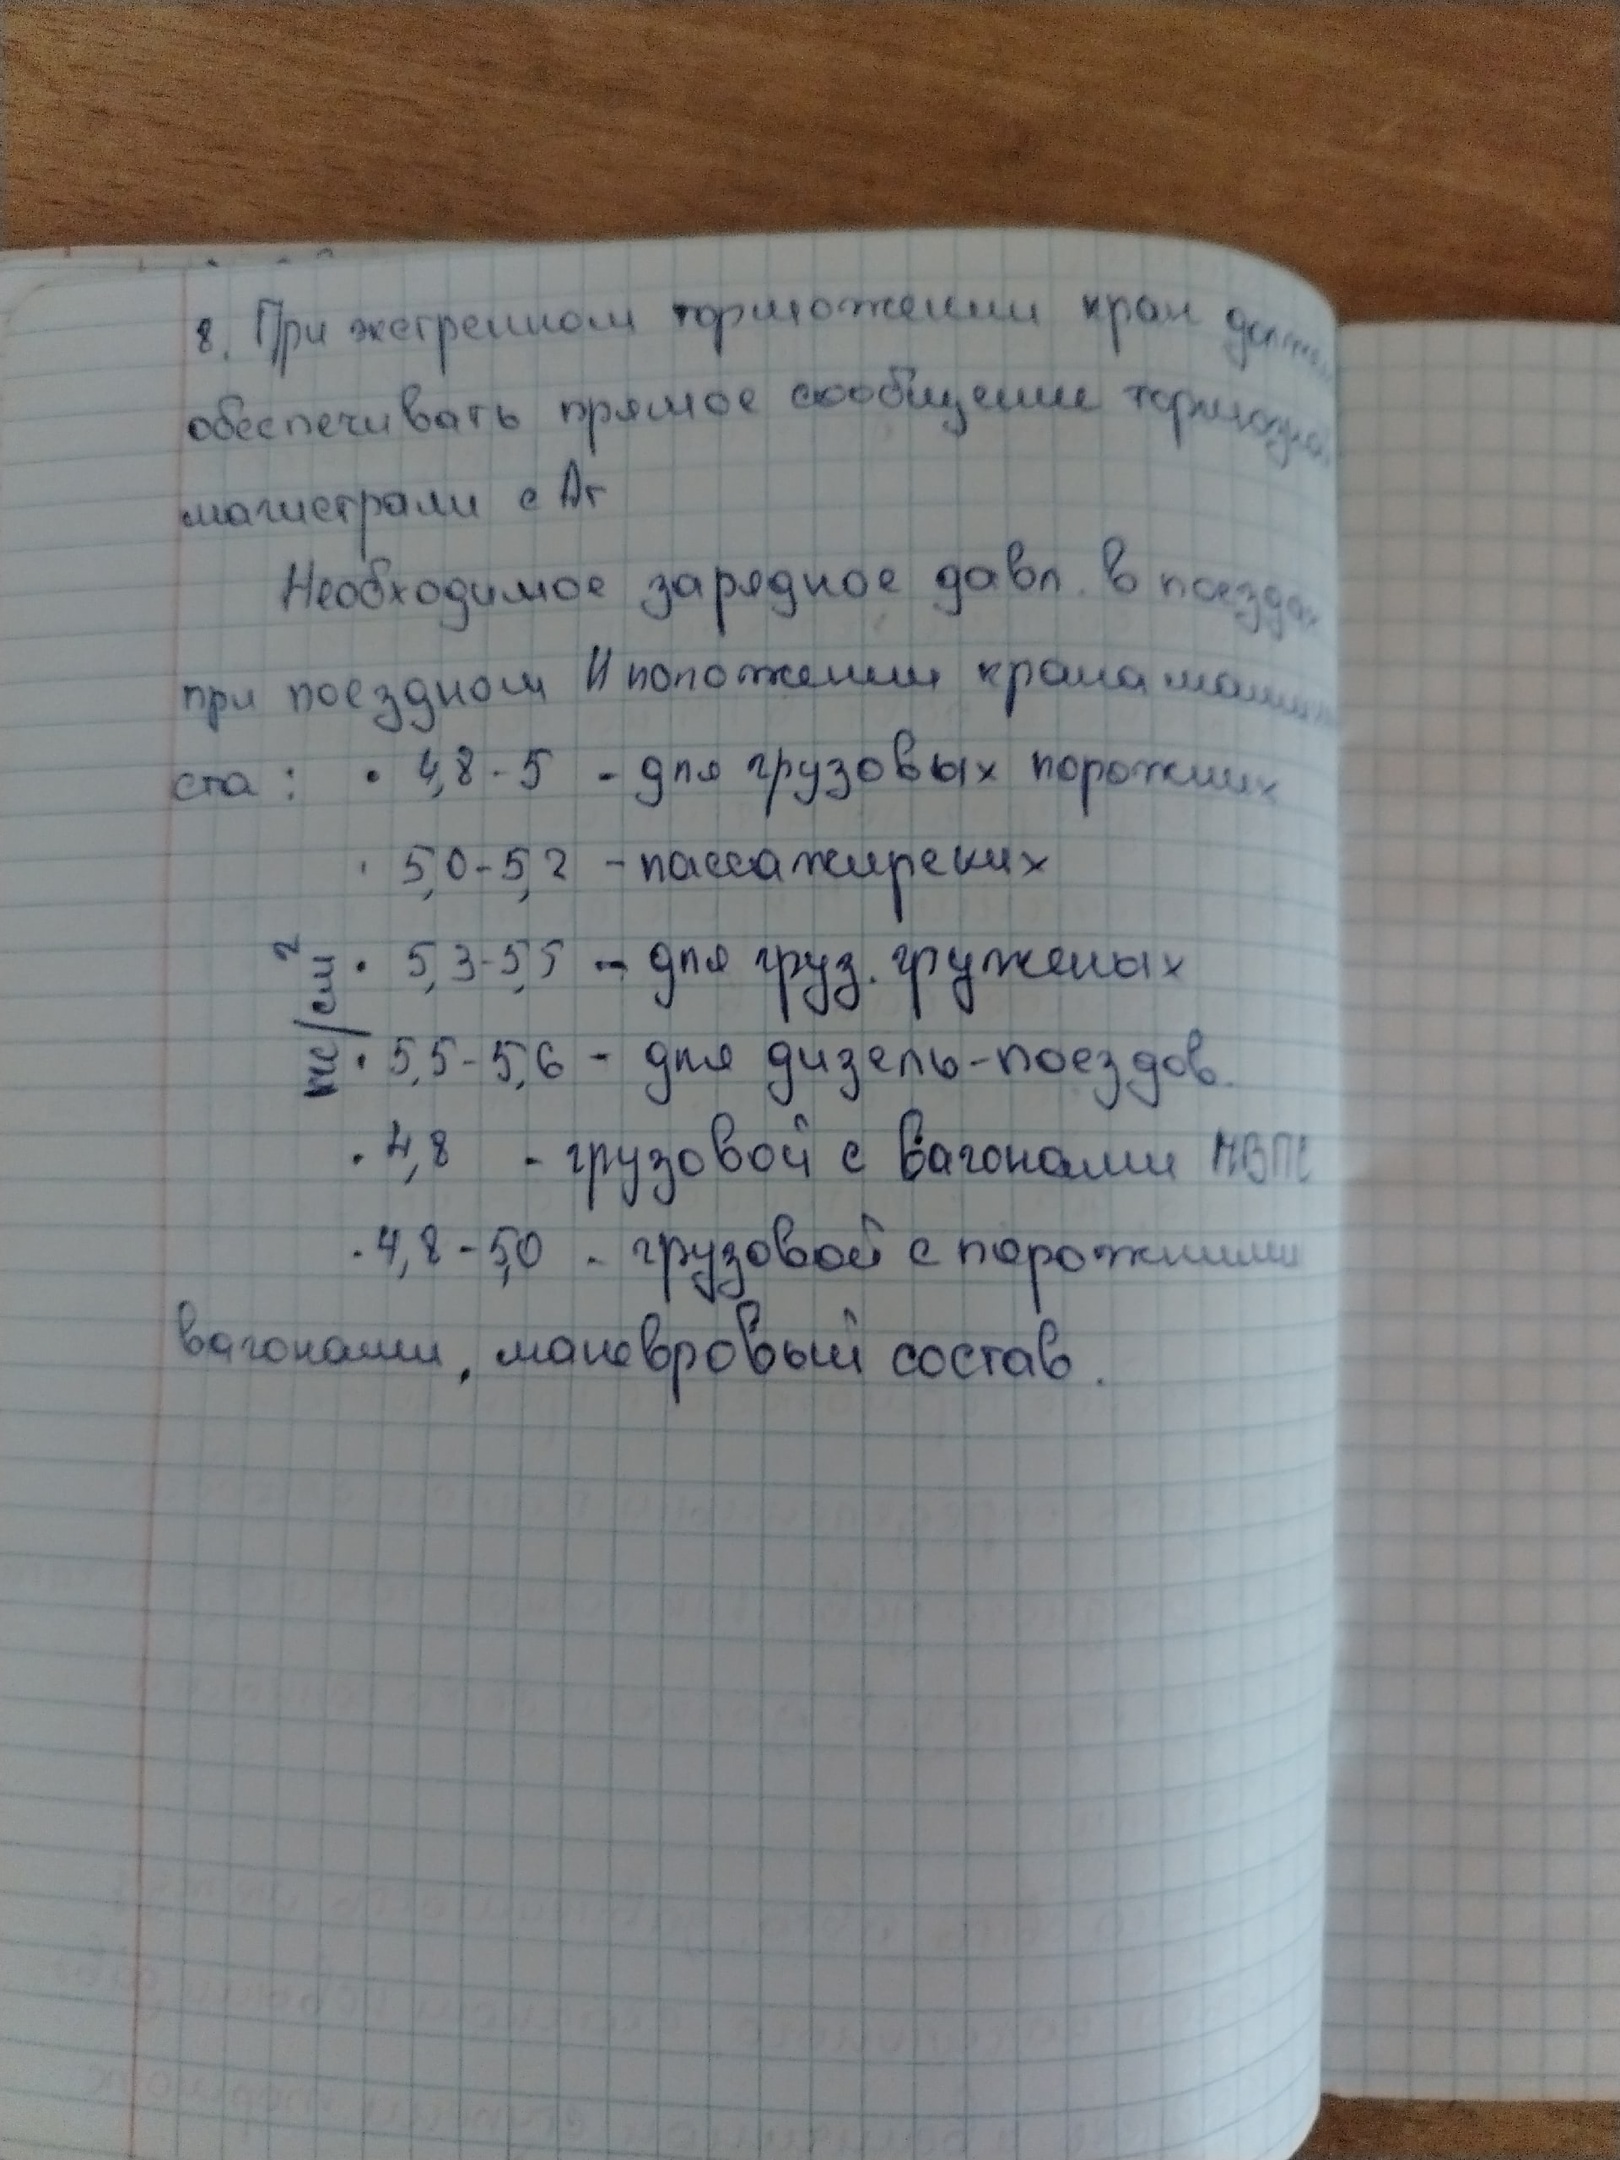 8. При экстренном торможении кран должен
обеспечивать прямое сообщение тормозной
магистрали с Ат
Необходимое зарядное давл. в поездах
при поездном II положении крана машини
ста: • 4,8-5 - для грузовых порожних
• 5,0-5,2 - пассажирских
• 5,3-5,5 - для груз. груженых
кгс/см²
• 5,5-5,6 - для дизель-поездов.
• 4,8 - грузовой с вагонами МВПС
• 4,8-5,0 - грузовой с порожними
вагонами, маневровый состав.